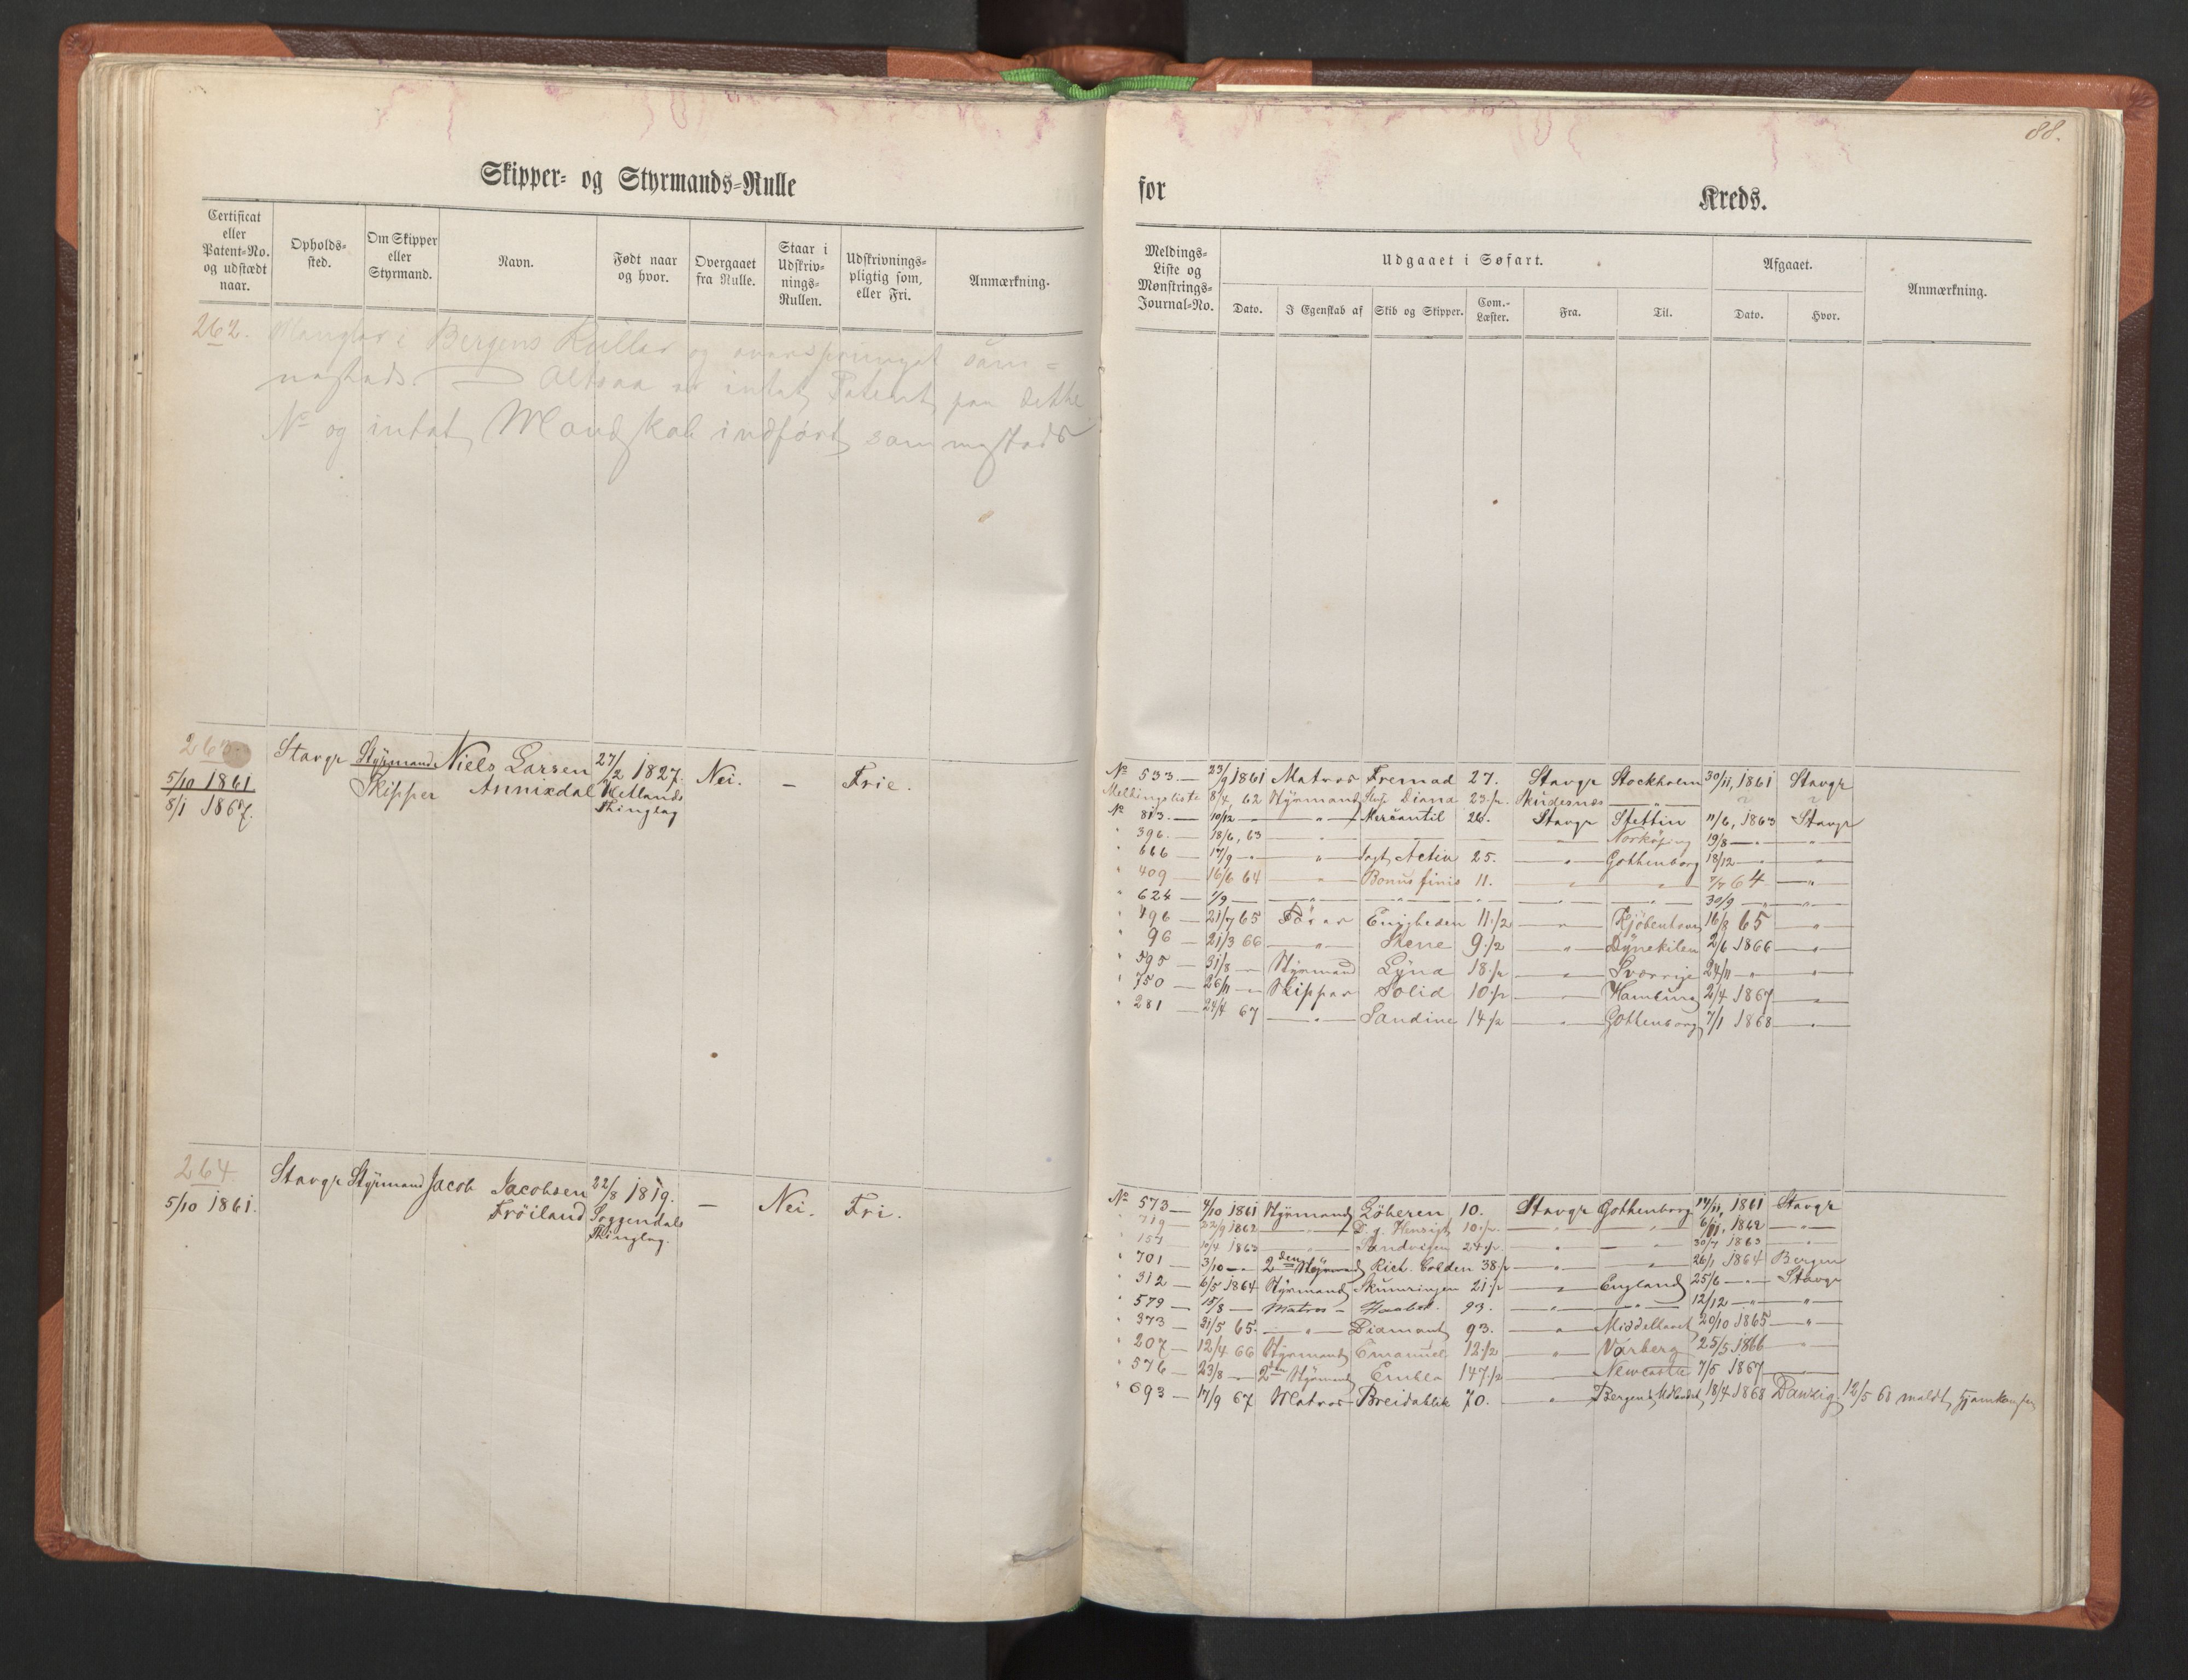 88.
Skipper- og Styrmands-Rulle
for Kreds.
Certificat eller Patent-No. og udstædt naar.
Opholds-sted.
Om Skipper eller Styrmand.
Navn.
Født naar og hvor.
Overgaaet fra Rulle.
Staar i Udskriv-nings-Rullen.
Udskrivnings-pligtig som, eller Fri.
Anmærkning.
Meldings-Liste og Mønstrings-Journal-No.
Udgaaet i Søfart.
Afgaaet.
Anmærkning.
Dato. I Egenskab af Skib og Skipper. Com.-Læster. Fra. Til. Dato. Hvor.
262. Mangler i Bergens Ruller og oversprunget sam=
mestads — Altsaa er intet Patent paa dette
No og intet Mandskab indført sammestads
263
5/10 1861
8/1 1867.
Stavgr Styrmand Niels Larsen 27/2 1827. Nei. — Frie.
Skipper Annixdal Hetlands
Thinglag
No 533 — 23/9 1861 Matros Fremad 27. Stavgr Stockholm 30/11, 1861 Stavgr
Meldingsliste 8/4, 62 Styrmand Diana 23 1/2. Skudesnes — " —
No 813. — 10/12 — " — Mercantil 26. Stavgr Stettin 11/6, 1863 Stavgr
" 396. — 18/6, 63 — " — Norköping 19/8 — " — " —
" 666 — 17/9 — " — Jagt Activ 25. — " — Gothenborg 18/12 — " — " —
" 409 — 16/6 64 — " — Bonus finis 11. — " — " — 7/7 64 — " —
" 624 — 1/9 — " — " — " — " — " — 30/9 — " — " —
" 496 — 21/7 65 Fører Enigheden 11 1/2 — " — Kjöbenhavn 16/8 65 — " —
" 96 — 21/3 66 — " — Irene 9 1/2 — " — Dynekilen 2/6 1866 — " —
" 595 — 31/8 — Styrmand Lyna 18 1/2 — " — Sverrige 24/11 — " — " —
" 750 — 26/11 — Skipper Solid 10 1/2 — " — Hamburg 2/4 1867 — " —
" 281 — 24/4 67 — " — Sandine 14 1/2 — " — Gothenborg 7/1 1868 — " —
264
5/10 1861.
Stavgr Styrmand Jacob Jacobsen 22/8 1819. — Nei. Fri.
Fröiland Soggendals
Thinglag.
No 573 — 4/10 1861 Styrmand 10. Stavgr Gothenborg 14/11, 1861 Stavgr
" 719 — 22/9 1862 — " — D. g. Hensigt 10 1/2. — " — " — 6/11, 1862 — " —
" 157 — 10/4 1863 — " — Sandvigen 24 1/2 — " — " — 30/7 1863 — " —
" 701 — 3/10 — " — 2den Styrmand Rich. Cobden 38 1/2 — " — " — 26/1 1864 Bergen
" 312 — 6/5 1864 Styrmand Skumringen 21 1/2 — " — England 25/6 — " — Stavgr
" 579 — 15/8 — Matros — Haabet. 93. — " — " — 12/12 — " — " —
" 373 — 31/5 65. — " — Diamant 93. — " — Middelhavet 20/10 1865 — " —
" 207 — 12/4 66 Styrmand Emanuel 12 1/2 — " — Varberg 25/5 1866 — " —
" 576 — 23/8 — 2den Styrmand Embla 147 1/2 — " — Newcastle 7/5 1867 — " —
" 693 — 17/9 67 Matros Breidablik 70. — " — Bergen 18/4 1868 Danzig. 12/5 68 meldt hjemkomsten